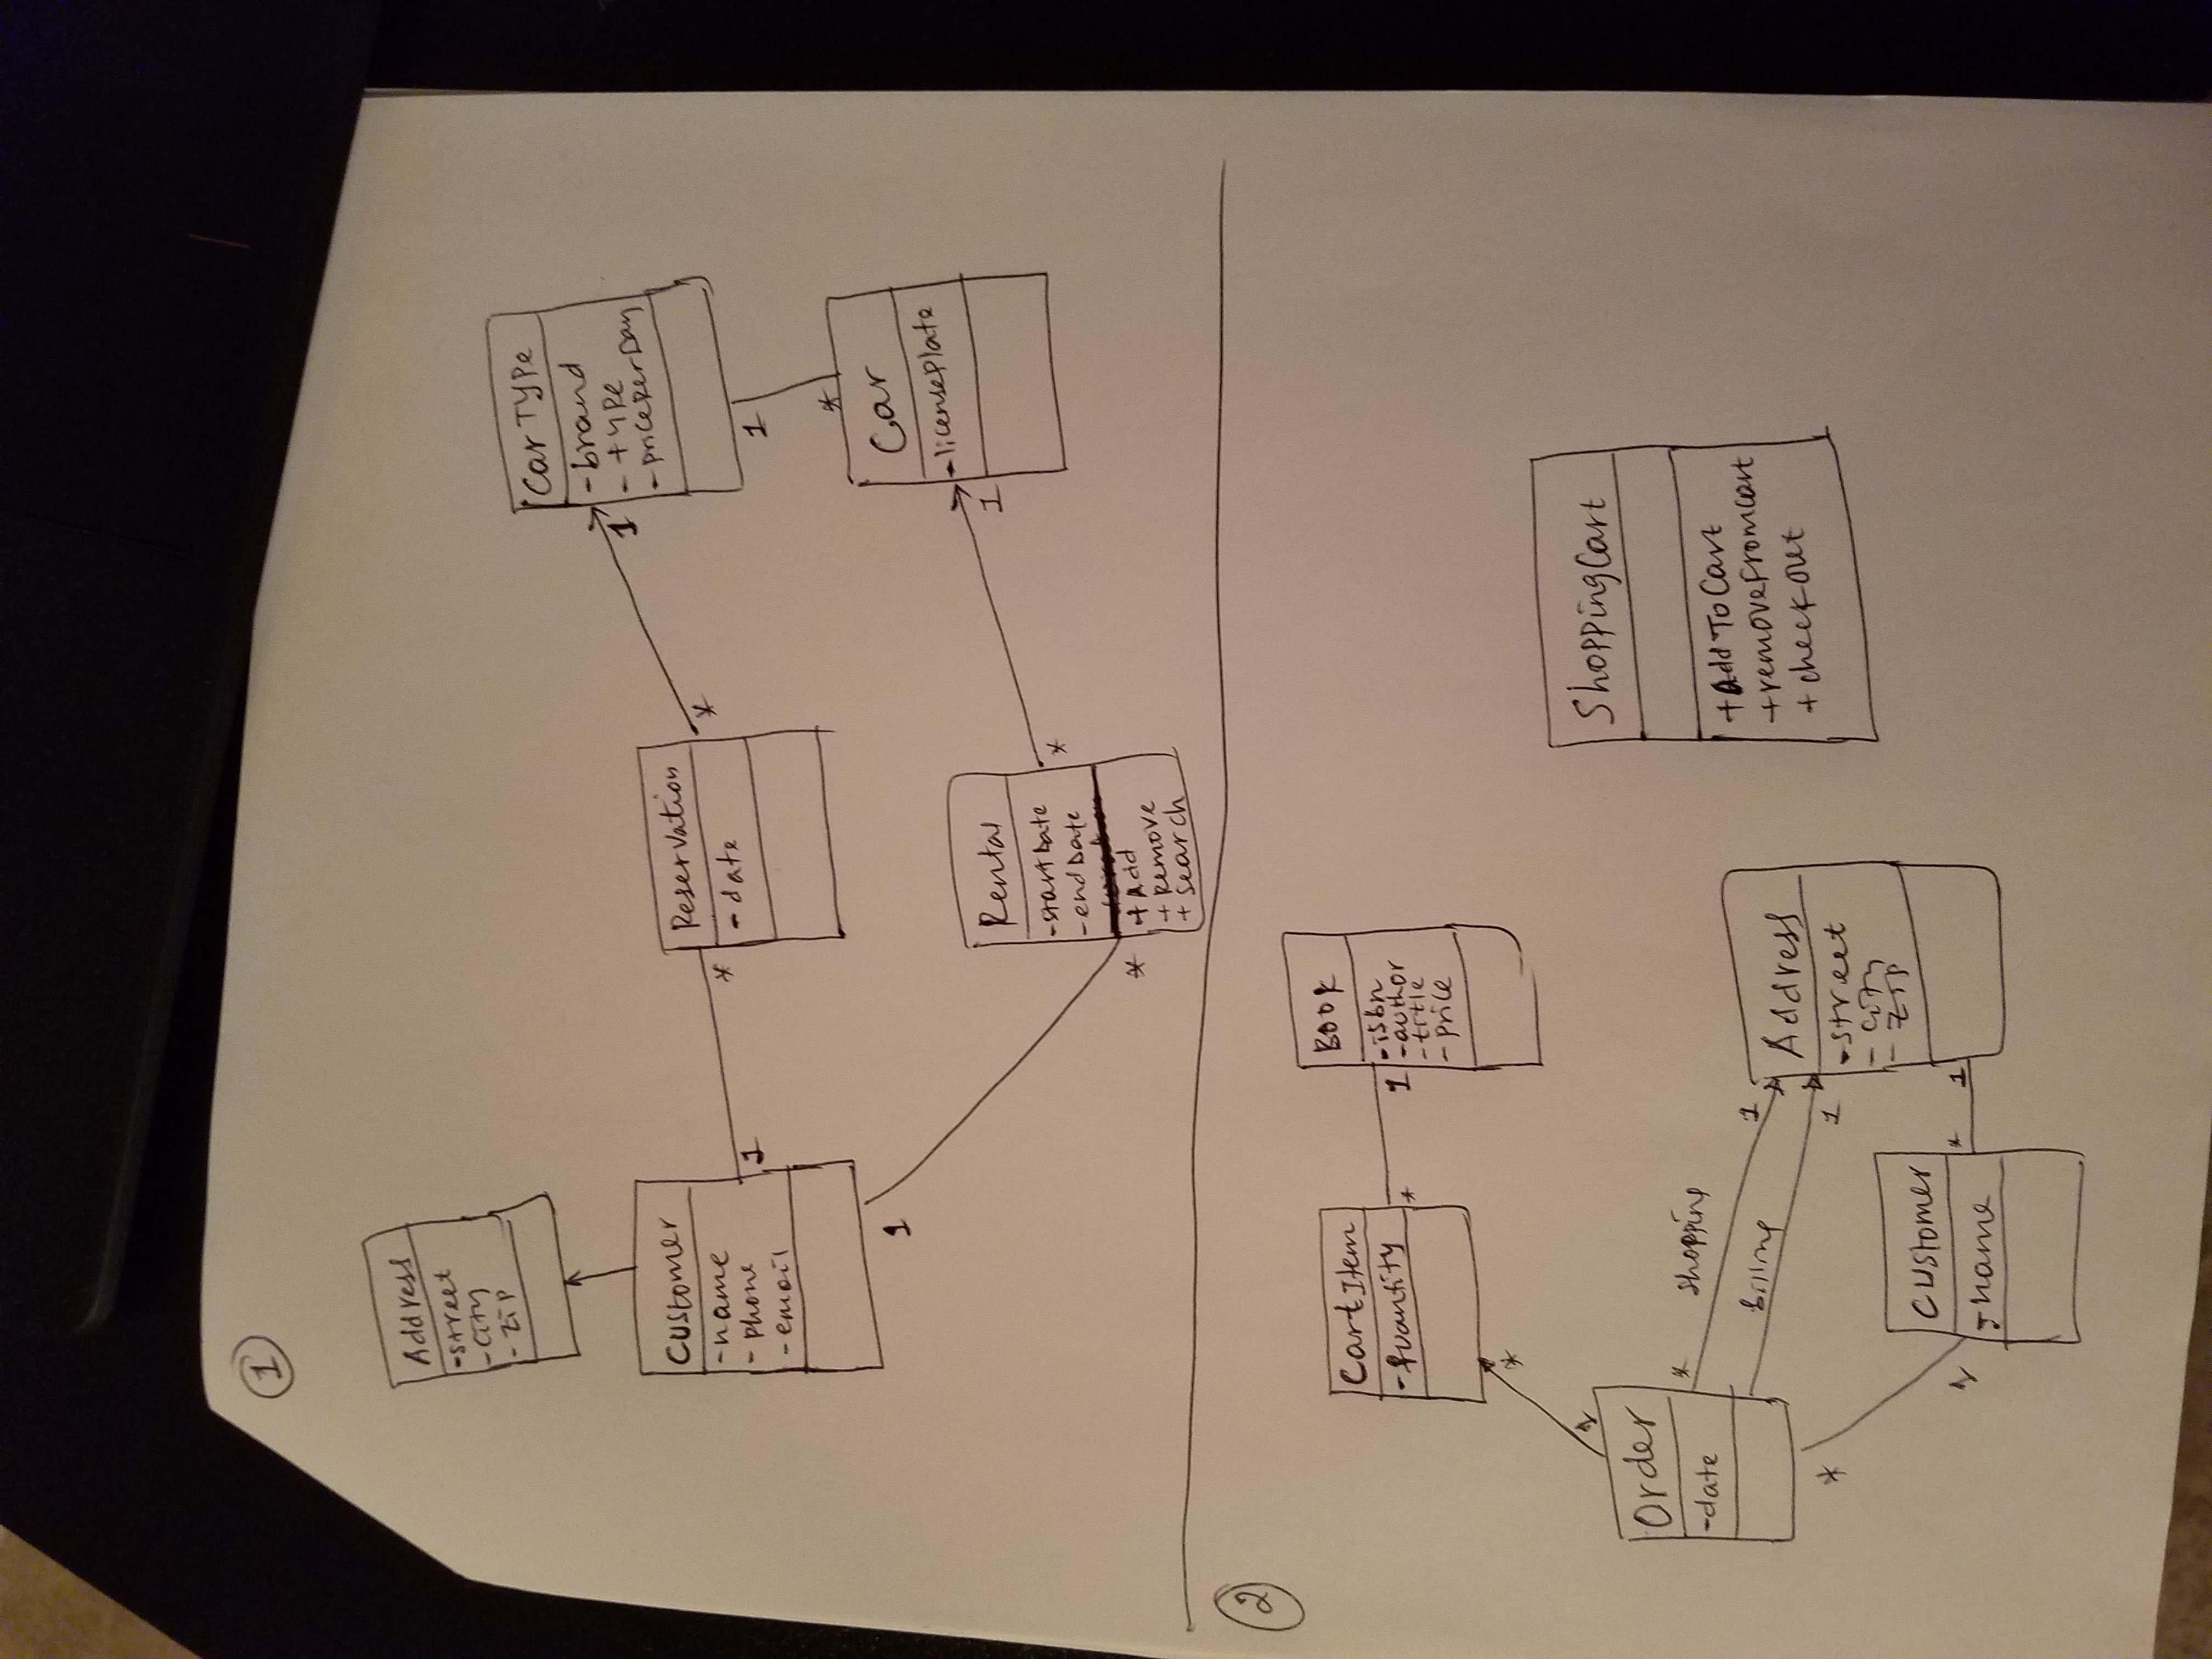 1
Address
-street
-city
-zip
Customer
-name
-phone
-email
1
*
Reservation
-date
*
1
CarType
-brand
-type
-pricePerDay
1
*
Car
-licensePlate
1
*
Rental
-startDate
-endDate
+Add
+Remove
+search
*
1
2
CartItem
-quantity
*
1
Book
-isbn
-author
-title
-price
*
1
Order
-date
*
shopping
1
billing
1
Address
-street
-city
-zip
*
1
Customer
-name
*
1
ShoppingCart
+AddToCart
+removeFromCart
+checkout